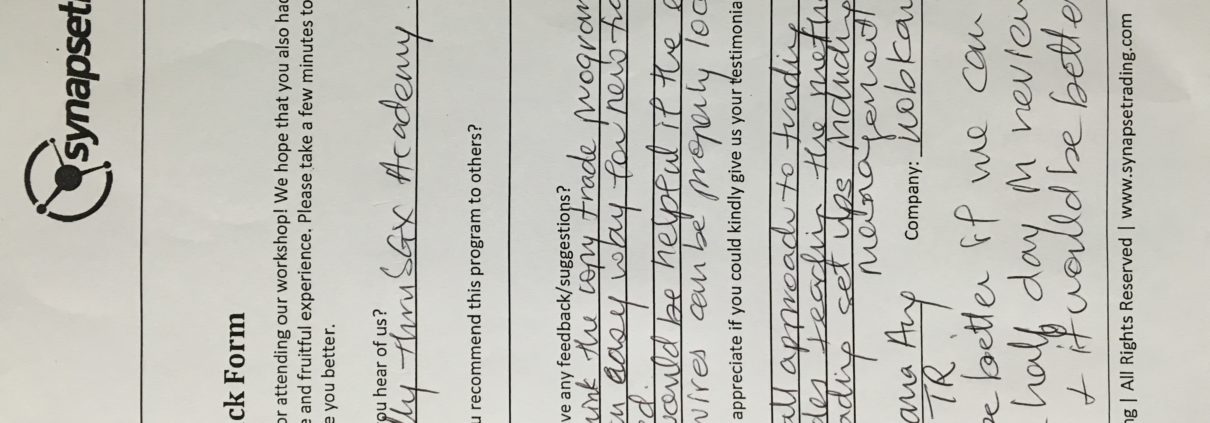 synapset
ck Form
or attending our workshop! We hope that you also had
e and fruitful experience. Please take a few minutes to
e you better.
ou hear of us?
thru SGX Academy.
u recommend this program to others?
ve any feedback/suggestions?
ink the copy trade program
easy way for
would be helpful if the
can be properly loc
appreciate if you could kindly give us your testimonia
all approach to trading
des teaching the meth
ading set ups including
management
Company:
TR
e better if we can
half day in review
+ it would be bette
ng | All Rights Reserved | www.synapsetrading.com